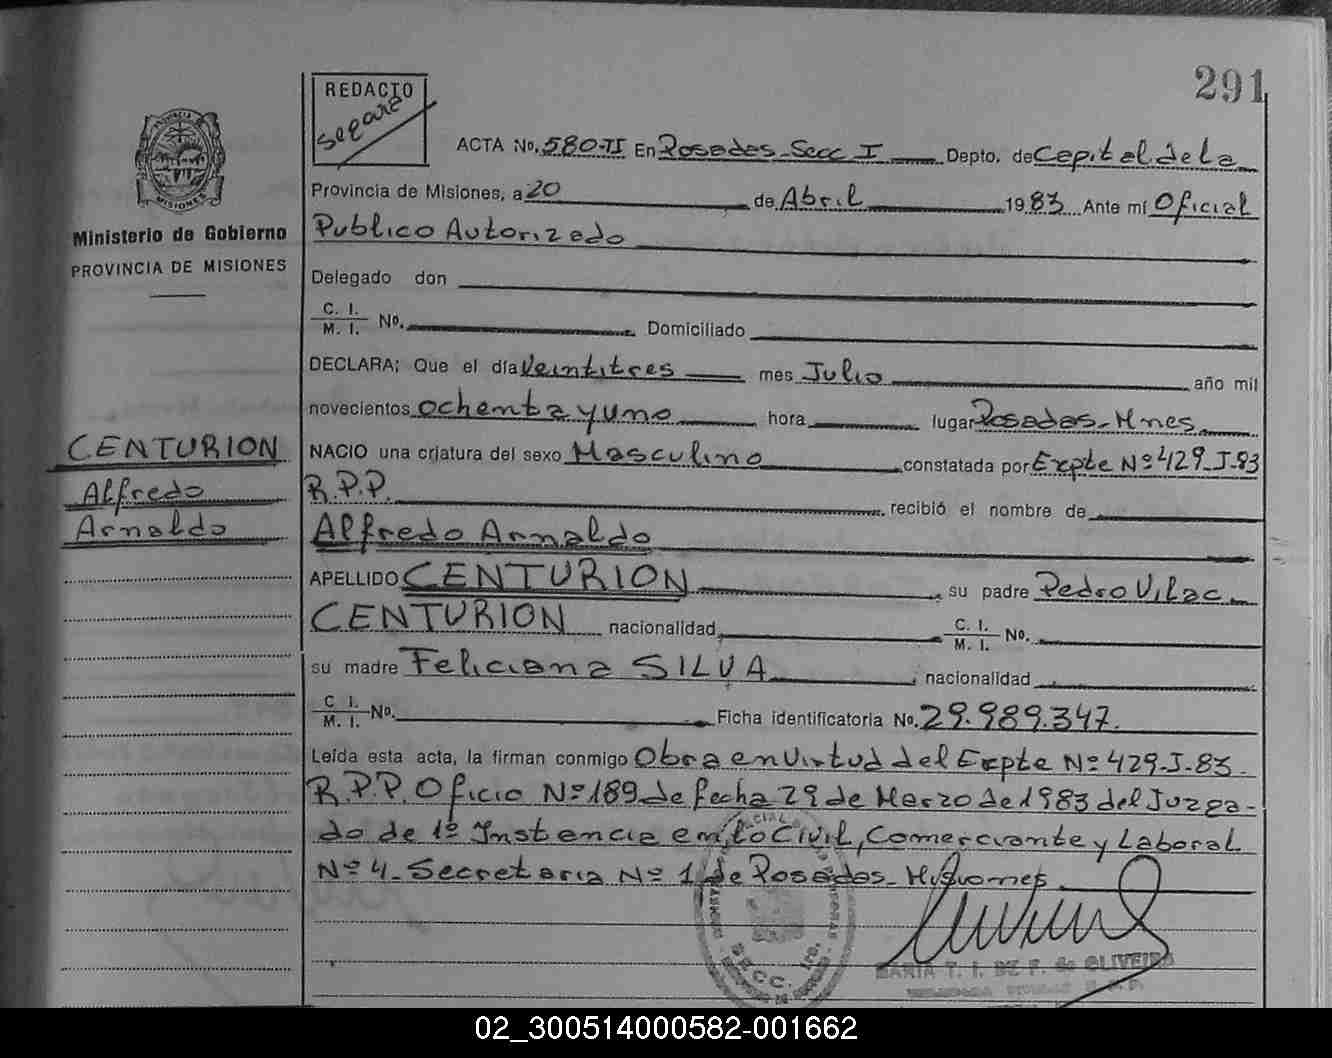 291
REDACTO
ACTA No. 580-II En Posadas-Secc I Depto. de Capital de la
Provincia de Misiones, a 20 de Abril 1983 Ante mí Oficial
Publico Autorizado
Ministerio de Gobierno
PROVINCIA DE MISIONES
Delegado don
C. I.
M. I. No. Domiciliado
DECLARA; Que el día Veintitres mes Julio año mil
novecientos ochenta y uno hora lugar Posadas-Mnes
CENTURION
Alfredo
Arnaldo
NACIO una criatura del sexo Masculino constatada por Expte Nº 429-J-83
R.P.P. recibió el nombre de
Alfredo Arnaldo
APELLIDO CENTURION su padre Pedro Vilac
CENTURION nacionalidad C. I. M. I. No.
su madre Feliciana SILVA nacionalidad
C. I.
M. I. No. Ficha identificatoria No. 29.989.347.
Leída esta acta, la firman conmigo Obra en Virtud del Expte Nº 429-J-83
R.P.P. Oficio Nº 189 de fecha 29 de Marzo de 1983 del Juzga-
do de 1º Instancia en lo Civil, Comerciante y Laboral
Nº 4-Secretaria Nº 1 de Posadas-Misiones
SECC. 1ra.
MARIA T. I. DE F. de OLIVEIRA
02_300514000582-001662